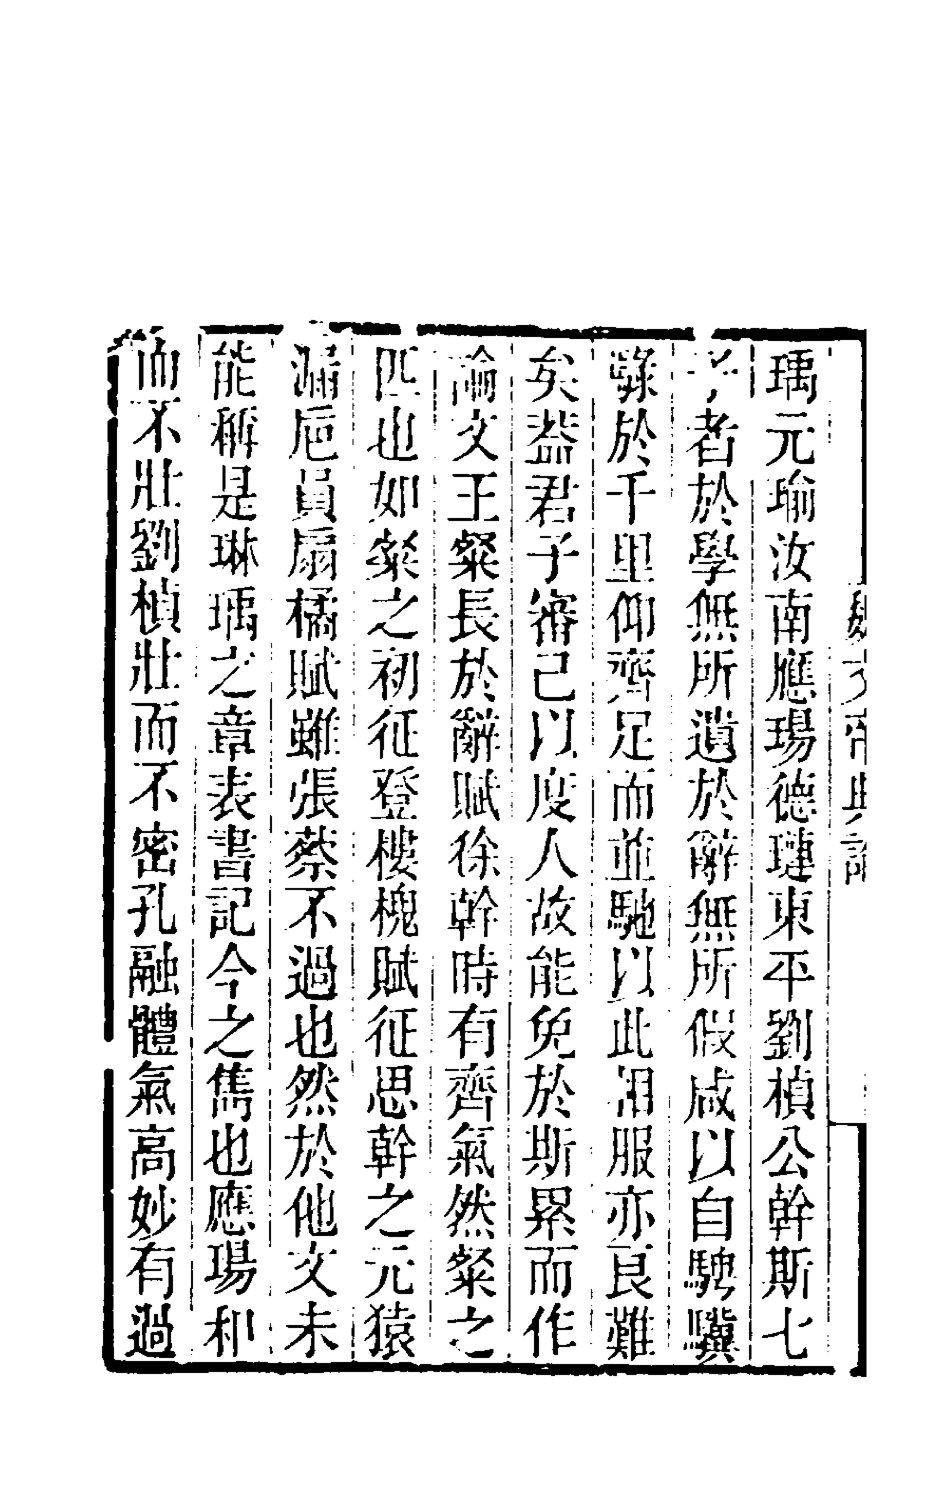 魏文帝典論
瑀元瑜汝南應瑒德璉東平劉楨公幹斯七
子者於學無所遺於辭無所假咸以自騁驥
騄於千里仰齊足而並馳以此相服亦良難
矣葢君子審己以度人故能免於斯累而作
論文王粲長於辭賦徐幹時有齊氣然粲之
匹也如粲之初征登樓槐賦征思幹之元猿
漏巵員扇橘賦雖張蔡不過也然於他文未
能稱是琳瑀之章表書記今之雋也應瑒和
而不壯劉楨壯而不密孔融體氣高妙有過